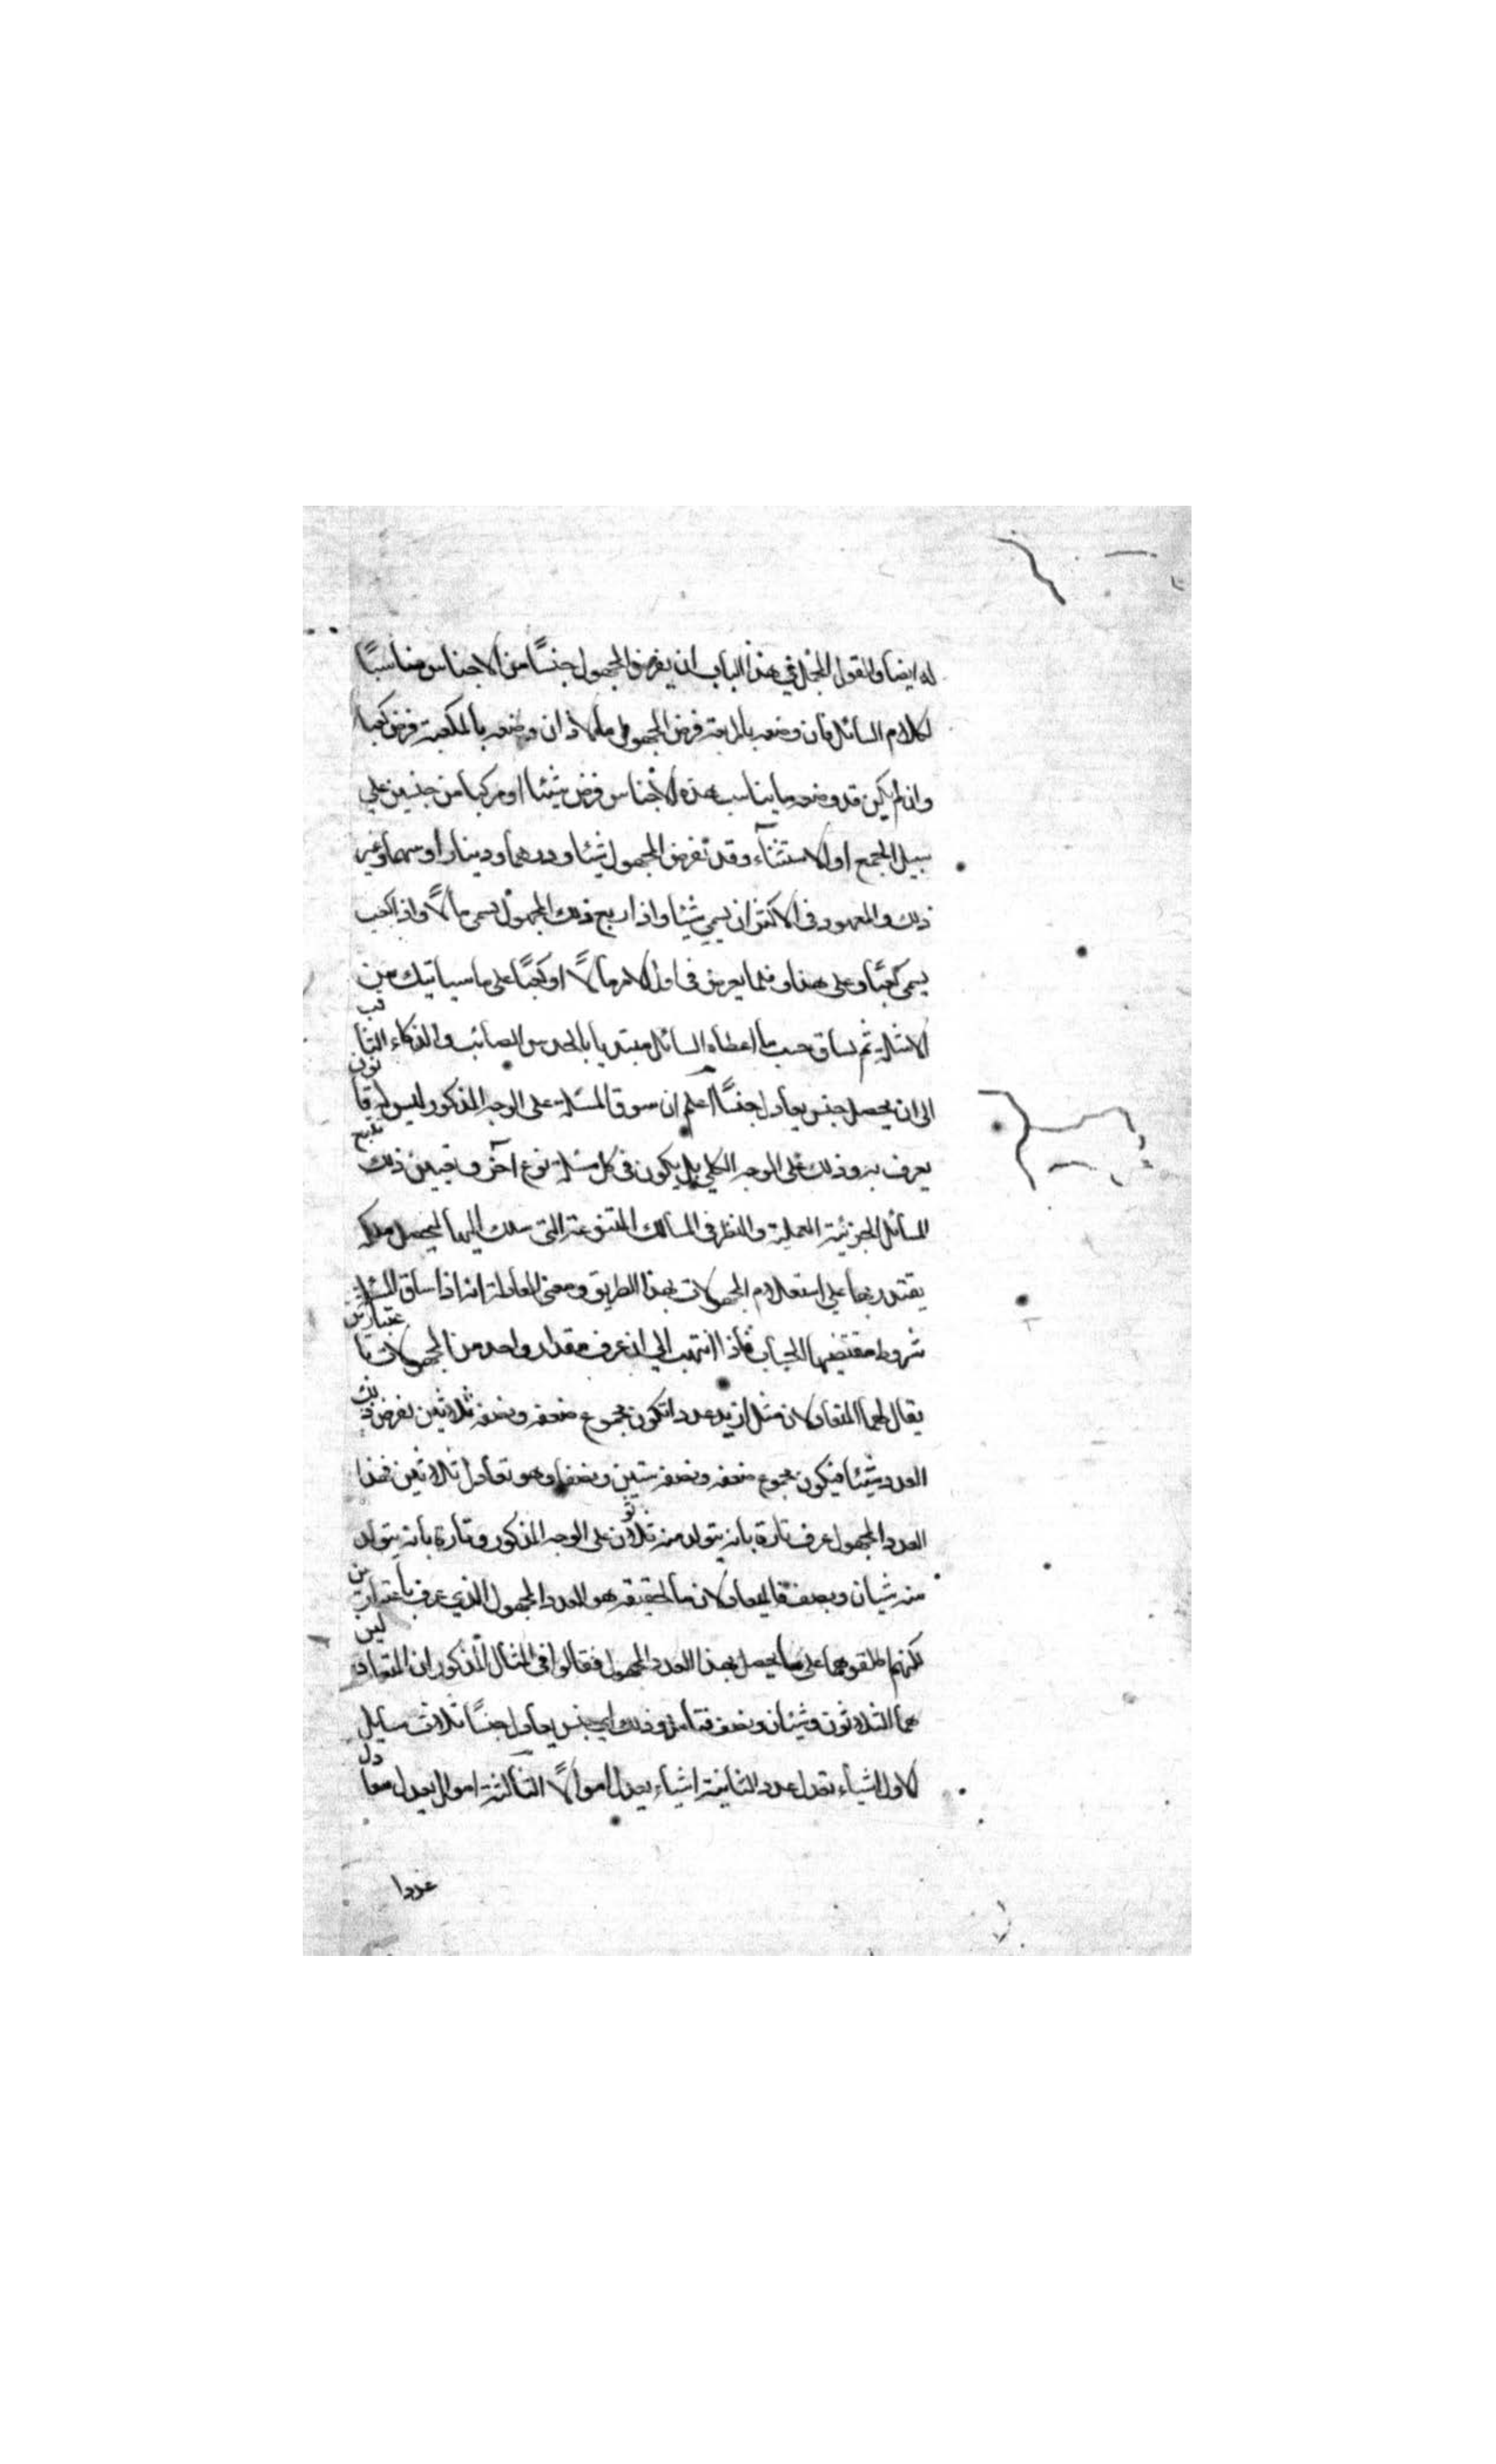 له ايضا والقول المجمل في هذا الباب ان يفرض المجهول جنسًا من الاجناس مناسبًا
لكلام السائل فان وصفه بالمربعية فرض المجهول مالا وان وصفه بالمكعبية فرض كعبا
وان لم يكن قد وصفه مايناسب هذه الاجناس فرض شيئا او مركبا من جنسين على
سبيل الجمع او الاستثنآء وقد تفرض المجهول شيئا ودرهما ودينارا وسهما وغير
ذلك والمعهود في الاكثر ان يسمي شيئا واذا ربع ذلك المجهول يسمى مالًا واذا كعب
يسمى كعبًا وعلى هذا وقلما يعرض في اول الامر مالًا او كعبًا على ما سياتيك من
الامثلة ثم يساق حسب ما اعطاه السائل مبتديا بالحدس الصائب والذكاء الثاقب
الى ان يحصل جنس يعادل جنسًا اعلم ان سوق المسئلة على الوجه المذكور وليس له قانون
يعرف به وذلك على الوجه الكلي بل يكون في كل مسئلة نوع آخر و ذلك
المسائل الجزئية العملية والنظر في المسالك المتنوعة التى سلك اليها ليحصل ملكة
يقتدر بها على استعلام المجهولات بهذا الطريق ومعنى المعادلة انه اذا ساق المسئلة
شروط مقتضيها الحساب فاذا انتهيت الي ان عرف مقدار واحد من المجهولات باعتبارين
يقال لهما المتعادلان مثل ازيد عددا تكون مجموع ضعفه ونصفه ثلاثين نفرض ذلك
العدد شيئا فيكون مجموع ضعفه ونصفه شيئين ونصفا وهو تعادل ثلاثين فهذا
العدد المجهول عرف تارة بانه يتولد منه ثلاثون على الوجه المذكور وتارة بانه يتولد
منه شيئان ونصف فالمتعادلان بالحقيقة هو العدد المجهول الذي عرف باعتبارين
لكنهم اطلقوهما على ما يحصل بهذا العدد المجهول فقالوا في المثال المذكور ان المتعادلين
هما الثلاثون وشيئان ونصف فتامل وذلك اي جنس يعادل جنسًا ثلاث مسايل
الاول اشياء تعدل عدد الثانية اشياء يعدل اموالًا الثالثة اموال يعدل معادل
عددا